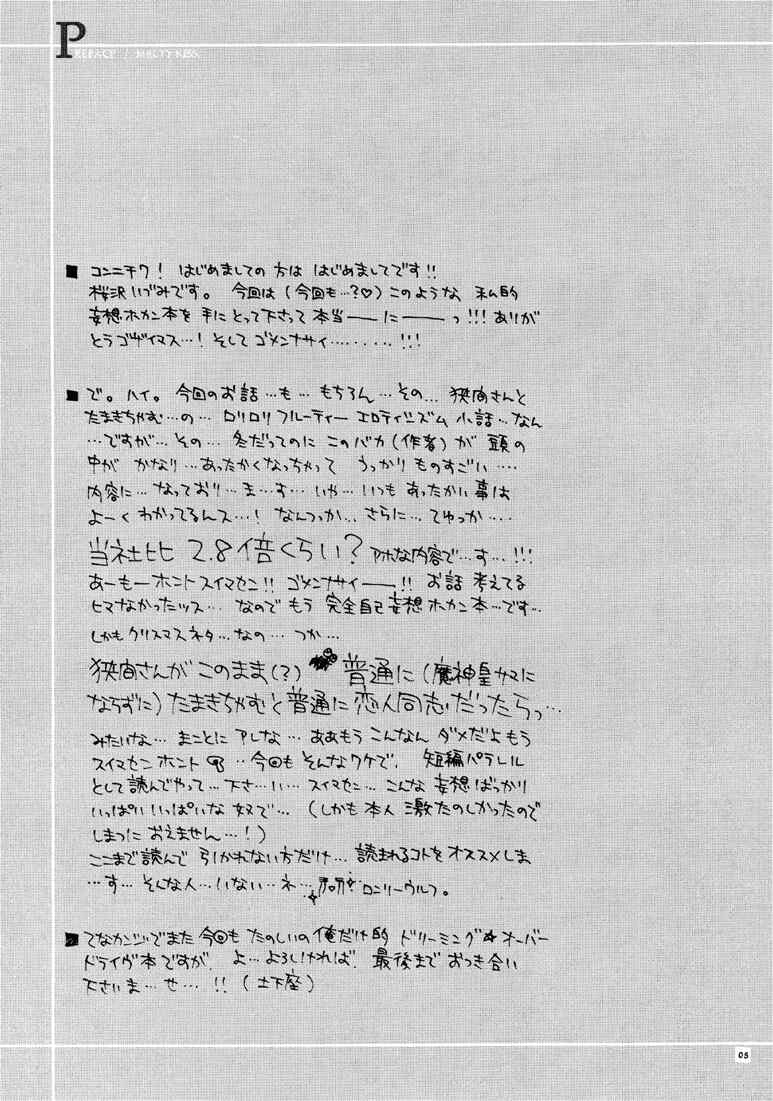 PREFACE / MELTY KISS
■ コンニチワ! はじめましての方は はじめましてです!!
桜沢いづみです。 今回は(今回も…?♡)このような 私的
妄想ホカン本を手にとって下さって本当――に――っ!!! ありが
とうゴザイマス…! そして ゴメンナサイ………!!!
■ で。ハイ。今回のお話…も…もちろん…その… 狭間さんと
たまきちゃむ…の… ロリロリ フルーティー エロティシズム 小話…なん
…ですが…その… 冬だってのに このバカ(作者)が 頭の
中が かなり…あったかくなっちゃって うっかり ものすごい…
内容に…なっており…ま…す… いや… いつも あったかい事は
よーく わかってるんス…! なんつっか… さらに… てゆっか…
当社比 2.8倍くらい? アホな内容で…す…!!!
あーもーホント スイマセン!! ゴメンナサイ――!! お話 考えてる
ヒマなかったッス… なので もう 完全自己妄想ホカン本…です…
しかも クリスマスネタ…なの… つか…
狭間さんが このまま(?) 普通に(魔神皇サマに
ならずに)たまきちゃむと普通に恋人同志だったらっ…
みたいな… まことに アレな… ああもう こんなん ダメだよ もう
スイマセン ホント …今回も そんなワケで、 短編パラレル
として読んでやって…下さ…い… スイマセン… こんな 妄想ばっかり
いっぱい いっぱいな 奴で… (しかも本人 激たのしかったので
しまつに おえません…!)
ここまで読んで 引かれない方だけ… 読まれるコトを オススメしま
…す… そんな人…いない…ネ… ロンリーウルフ。
■ てなカンジでまた 今回も たのしいの俺だけ的 ドリーミング☆オーバー
ドライヴ本ですが、 よ…よろしければ、最後まで おつき合い
下さいま…せ…!! (土下座)
05